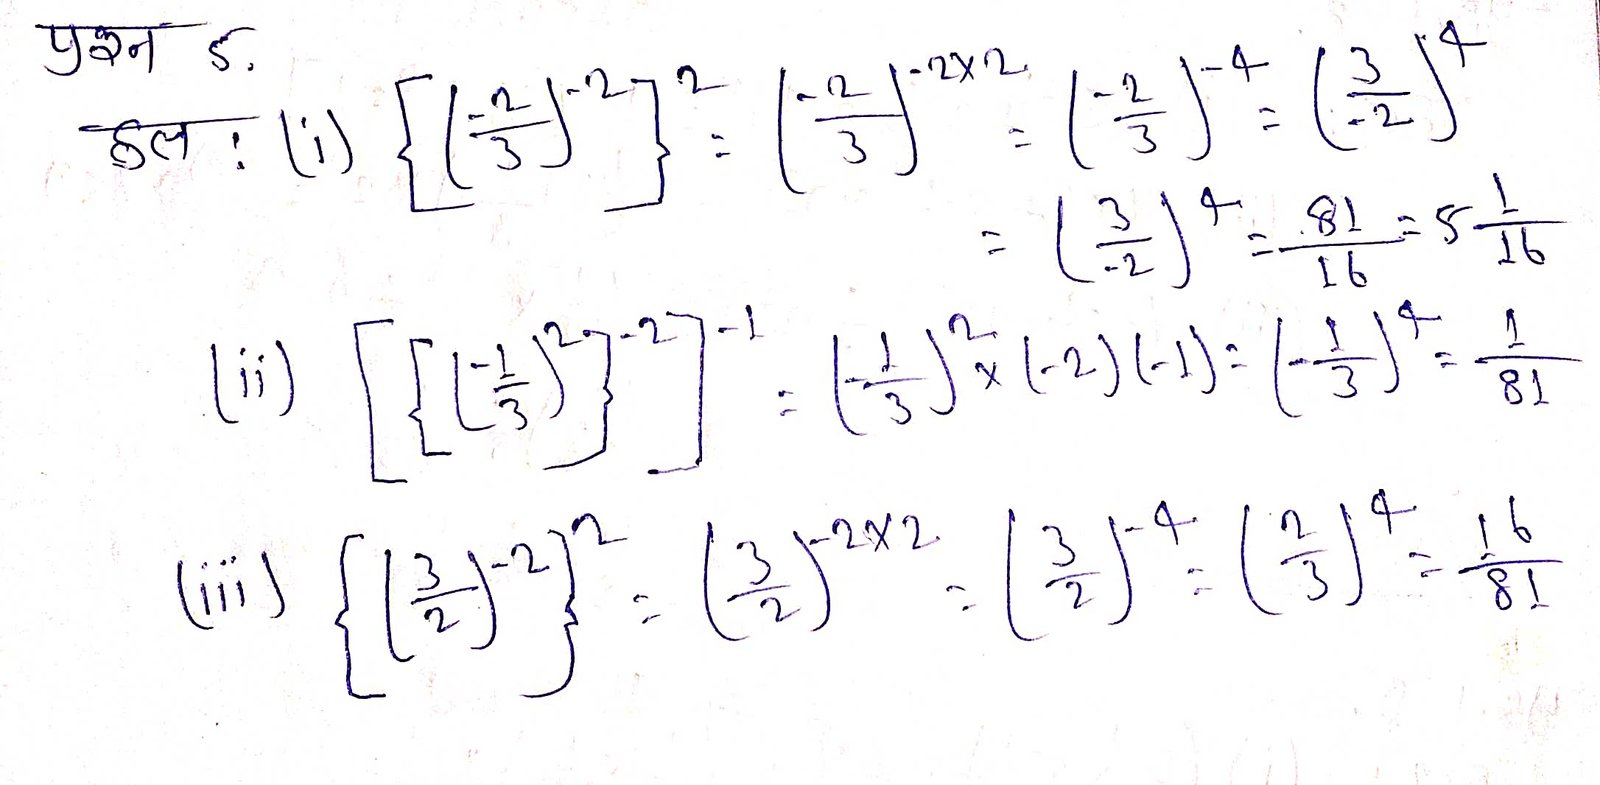 प्रश्न 5.
हल : (i) {(-2/3)^-2}^2 = (-2/3)^-2×2 = (-2/3)^-4 = (3/-2)^4
= (3/-2)^4 = 81/16 = 5 1/16
(ii) [{(-1/3)^2}^-2]^-1 = (-1/3)^2 × (-2)(-1) = (-1/3)^4 = 1/81
(iii) {(3/2)^-2}^2 = (3/2)^-2×2 = (3/2)^-4 = (2/3)^4 = 16/81